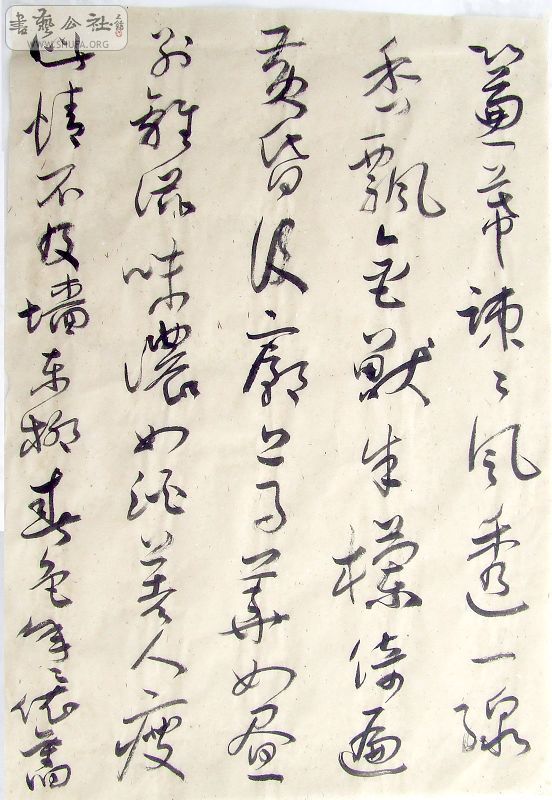 簾幕疎々風透一線
香飄金獸朱欄倚遍
黃昏後廊上月華如晝
別離滋味濃如酒著人瘦
此情不及墻東柳春色年々依舊
書藝公社
WWW.SHUFA.ORG